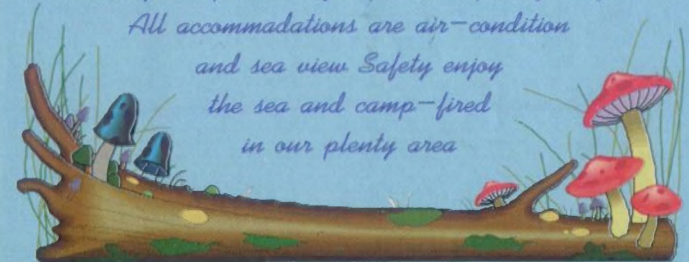 All accommadations are air-condition
and sea view Safety enjoy
the sea and camp-fired
in our plenty area